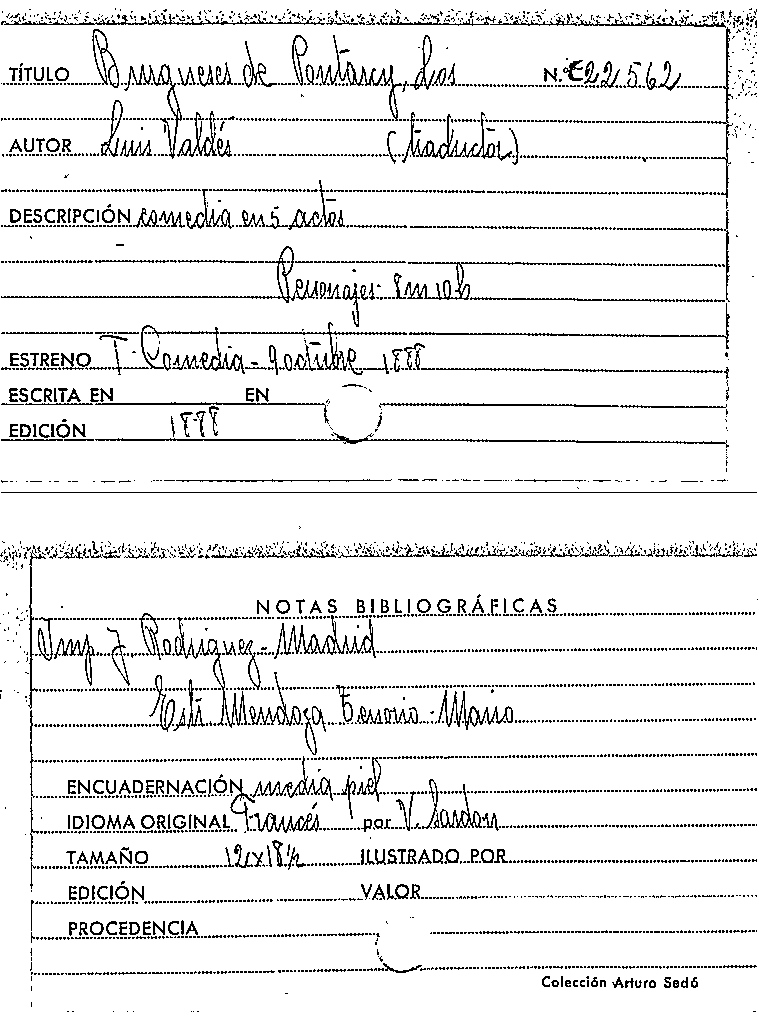 TÍTULO Burgueses de Pontarcy, Los N.º E22562
AUTOR Luis Valdés (traductor)
DESCRIPCIÓN comedia en 5 actos
Personajes 8m 10h
ESTRENO T. Comedia - 9 octubre 1888
ESCRITA EN EN
EDICIÓN 1888
NOTAS BIBLIOGRÁFICAS
Imp. J. Rodriguez - Madrid
Mendoza Tenorio - Mario
ENCUADERNACIÓN media piel
IDIOMA ORIGINAL Francés por V. Sardou
TAMAÑO 12x18½ ILUSTRADO POR
EDICIÓN VALOR
PROCEDENCIA
Colección Arturo Sedó